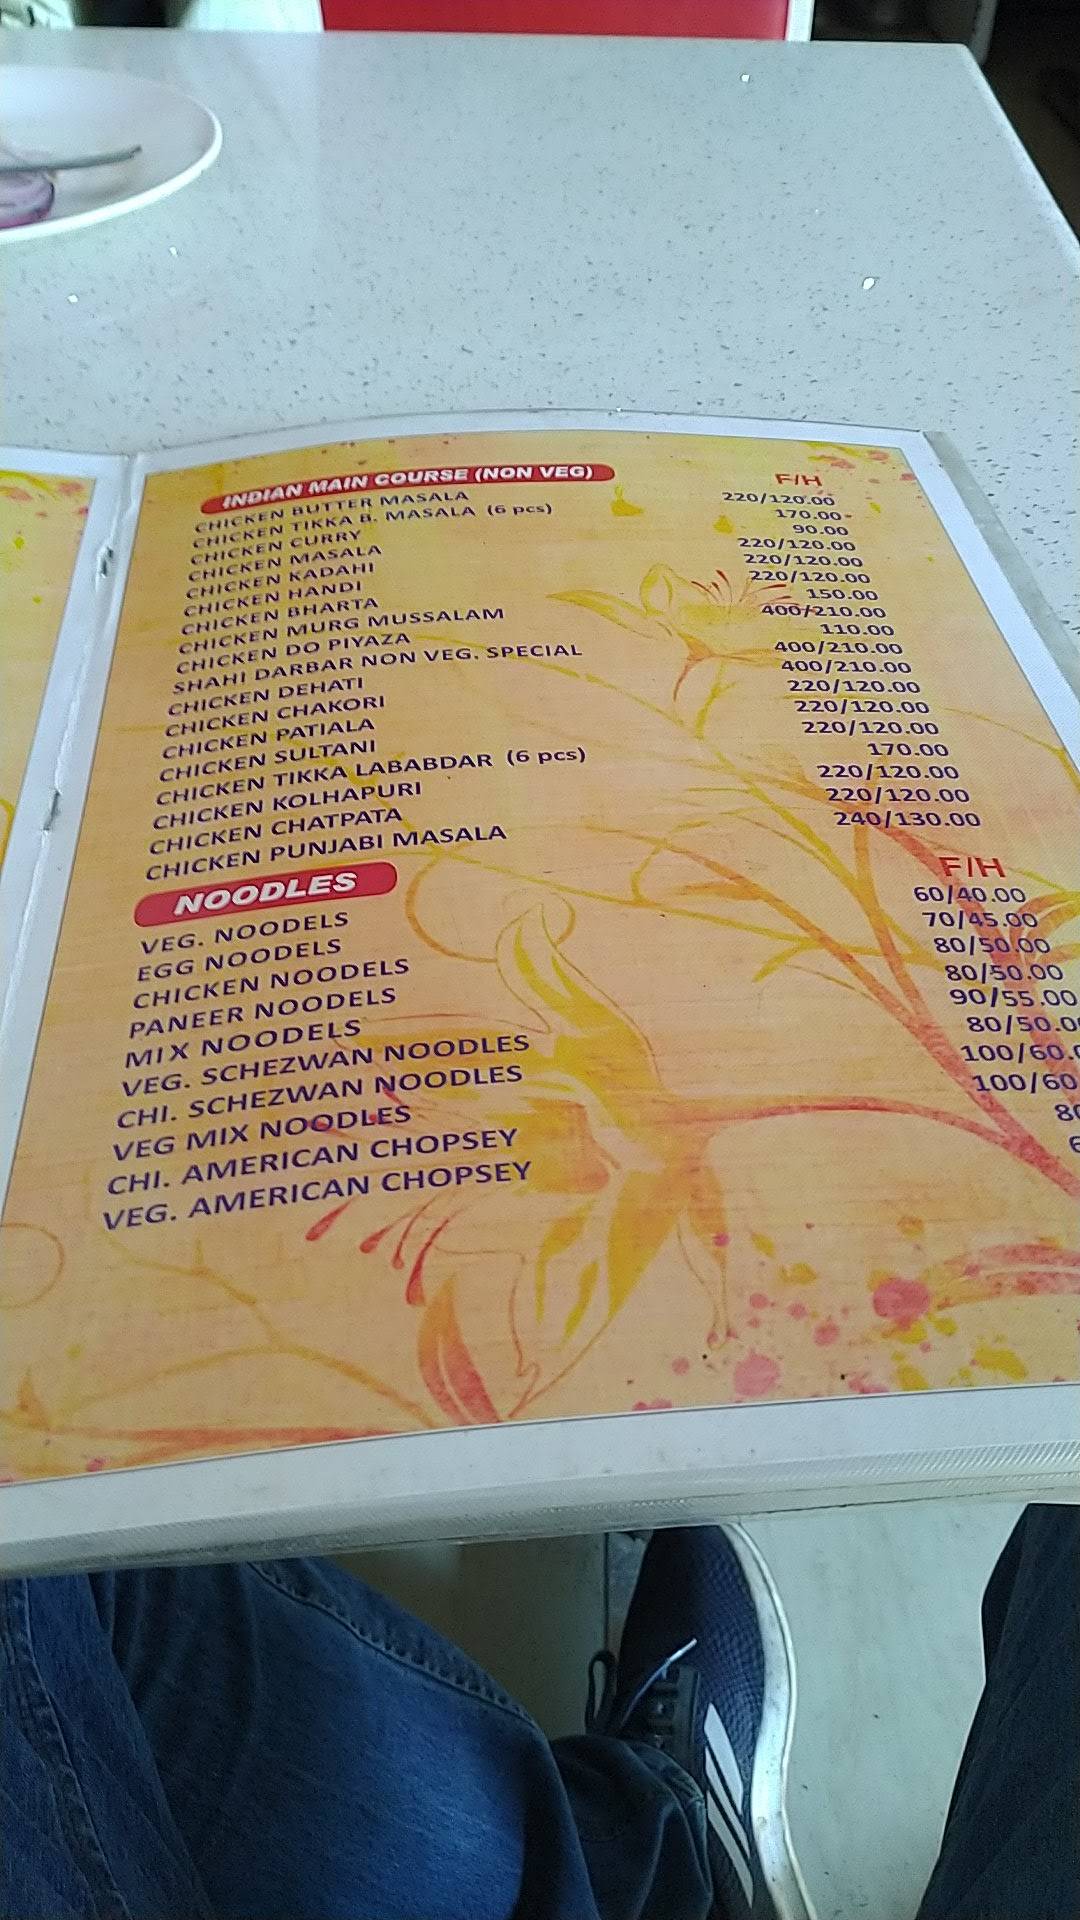 INDIAN MAIN COURSE (NON VEG) F/H
CHICKEN BUTTER MASALA 220/120.00
CHICKEN TIKKA B. MASALA (6 pcs) 170.00
CHICKEN CURRY 90.00
CHICKEN MASALA 220/120.00
CHICKEN KADAHI 220/120.00
CHICKEN HANDI 220/120.00
CHICKEN BHARTA 150.00
CHICKEN MURG MUSSALAM 400/210.00
CHICKEN DO PIYAZA 110.00
SHAHI DARBAR NON VEG. SPECIAL 400/210.00
CHICKEN DEHATI 400/210.00
CHICKEN CHAKORI 220/120.00
CHICKEN PATIALA 220/120.00
CHICKEN SULTANI 220/120.00
CHICKEN TIKKA LABABDAR (6 pcs) 170.00
CHICKEN KOLHAPURI 220/120.00
CHICKEN CHATPATA 220/120.00
CHICKEN PUNJABI MASALA 240/130.00
NOODLES F/H
VEG. NOODELS 60/40.00
EGG NOODELS 70/45.00
CHICKEN NOODELS 80/50.00
PANEER NOODELS 80/50.00
MIX NOODELS 90/55.00
VEG. SCHEZWAN NOODLES 80/50.0
CHI. SCHEZWAN NOODLES 100/60.
VEG MIX NOODLES 100/60
CHI. AMERICAN CHOPSEY
VEG. AMERICAN CHOPSEY